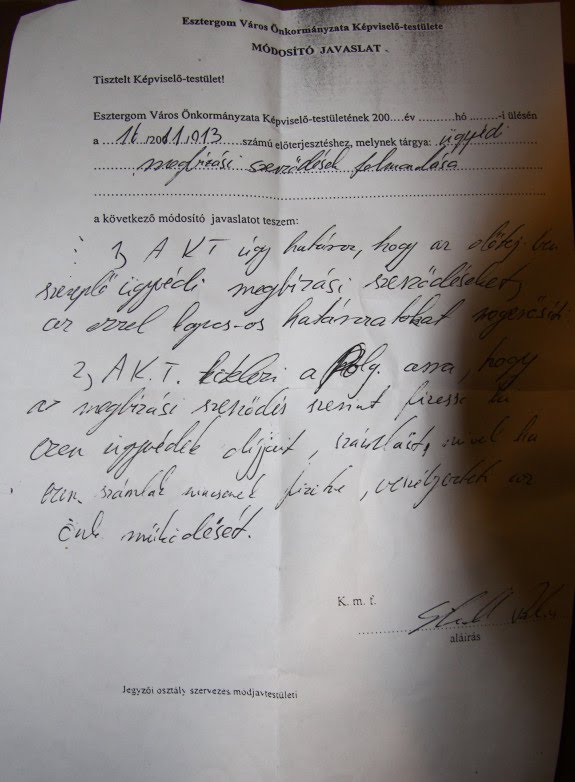 Esztergom Város Önkormányzata Képviselő-testülete
MÓDOSÍTÓ JAVASLAT
Tisztelt Képviselő-testület!
Esztergom Város Önkormányzata Képviselő-testületének 200....év ..........hó ........-i ülésén
a ............ számú előterjesztéshez, melynek tárgya: ügyvédi
megbízási szerződések felmondása
a következő módosító javaslatot teszem:
1, A KT úgy határoz, hogy az előterj.ben
szereplő ügyvédi megbízási szerződéseket,
az ezzel kapcs-os határozatokat
2, A K.T. a Polg. arra, hogy
a megbízási szerződés szerint fizesse ki
ezen ügyvédek díjait, számláit, mivel ha
ezen számlák nincsenek fizetve, veszélyezteti az
Önk működését.
K. m. f.
aláírás
Jegyzői osztály szervezes modjavtestületi